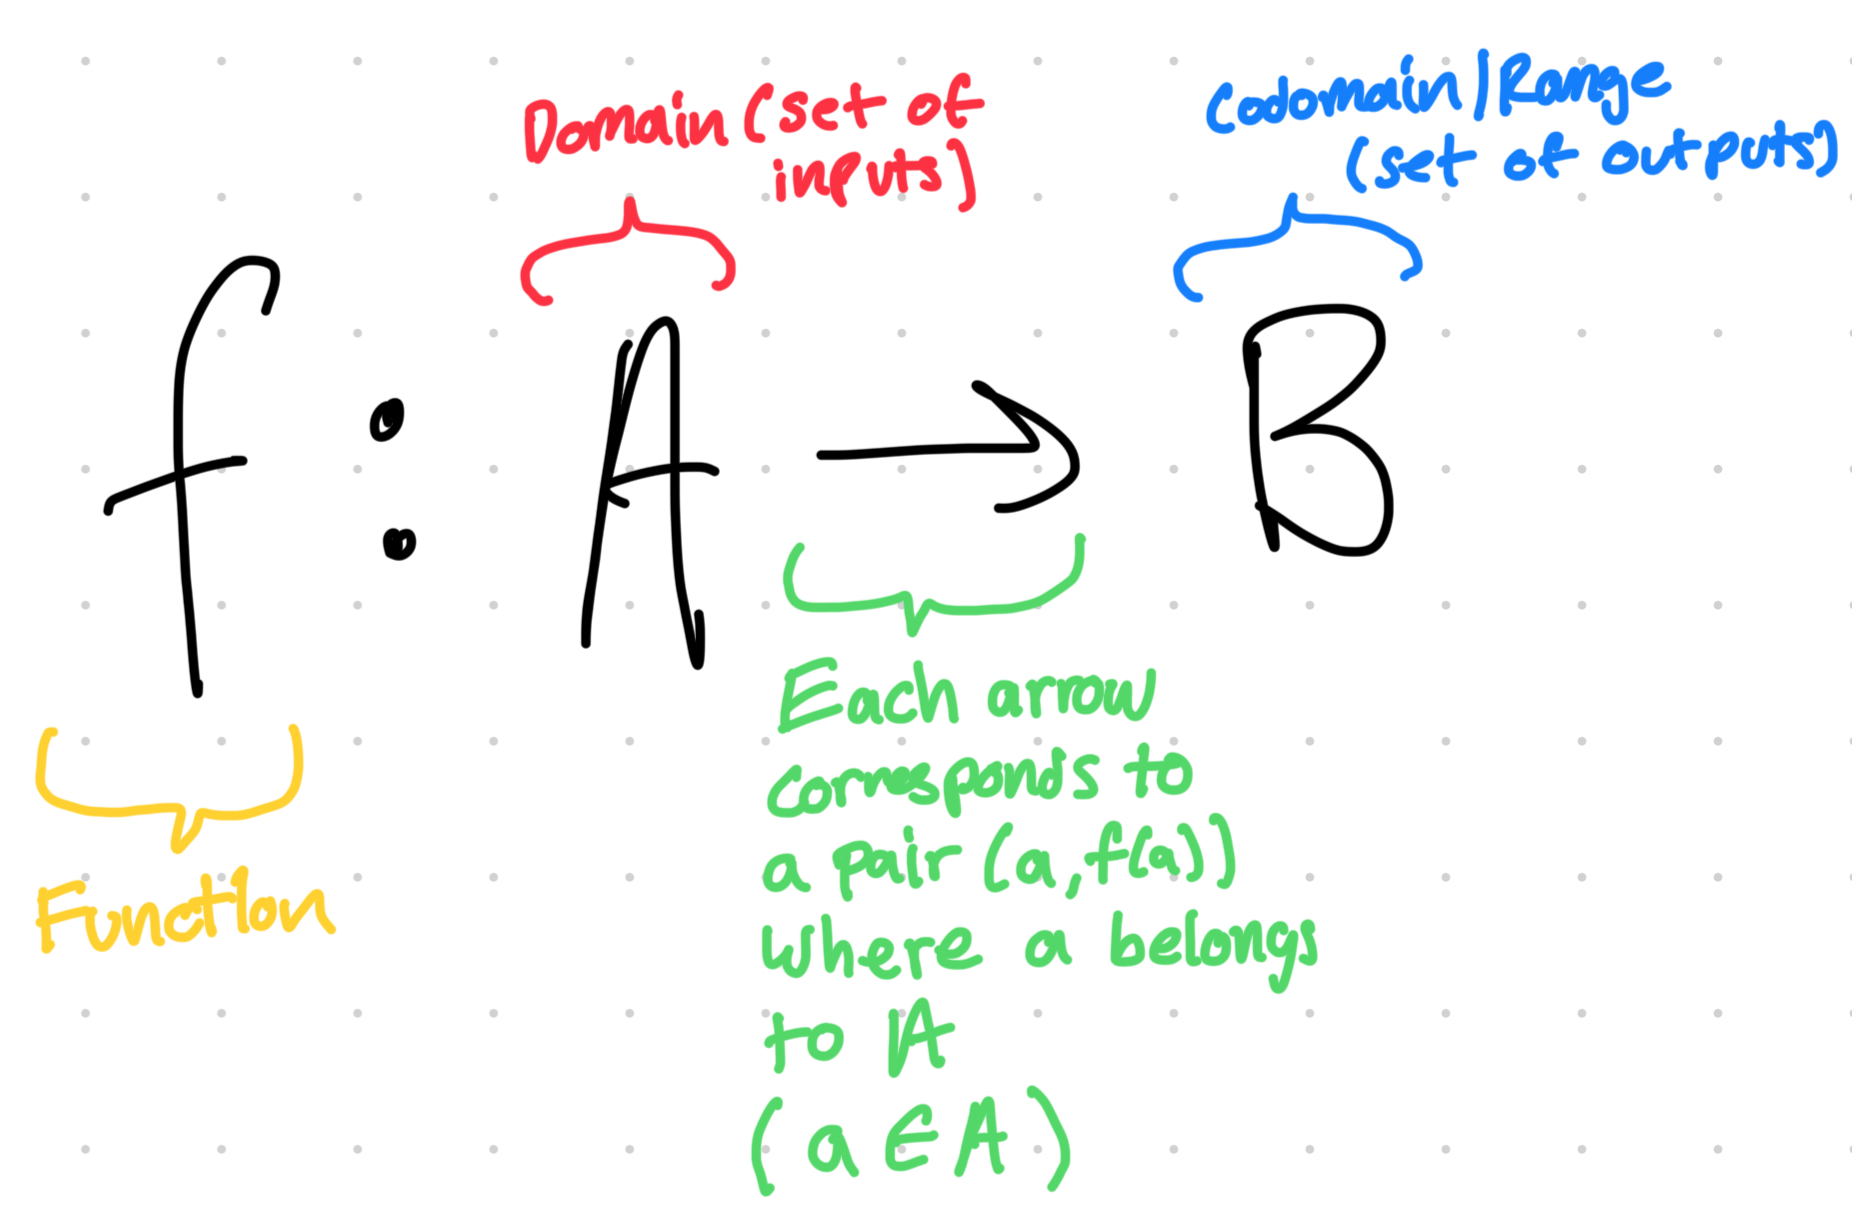 Domain (set of
inputs)
Codomain/Range
(set of outputs)
f : A → B
Function
Each arrow
corresponds to
a pair (a, f(a))
where a belongs
to A
(a ∈ A)